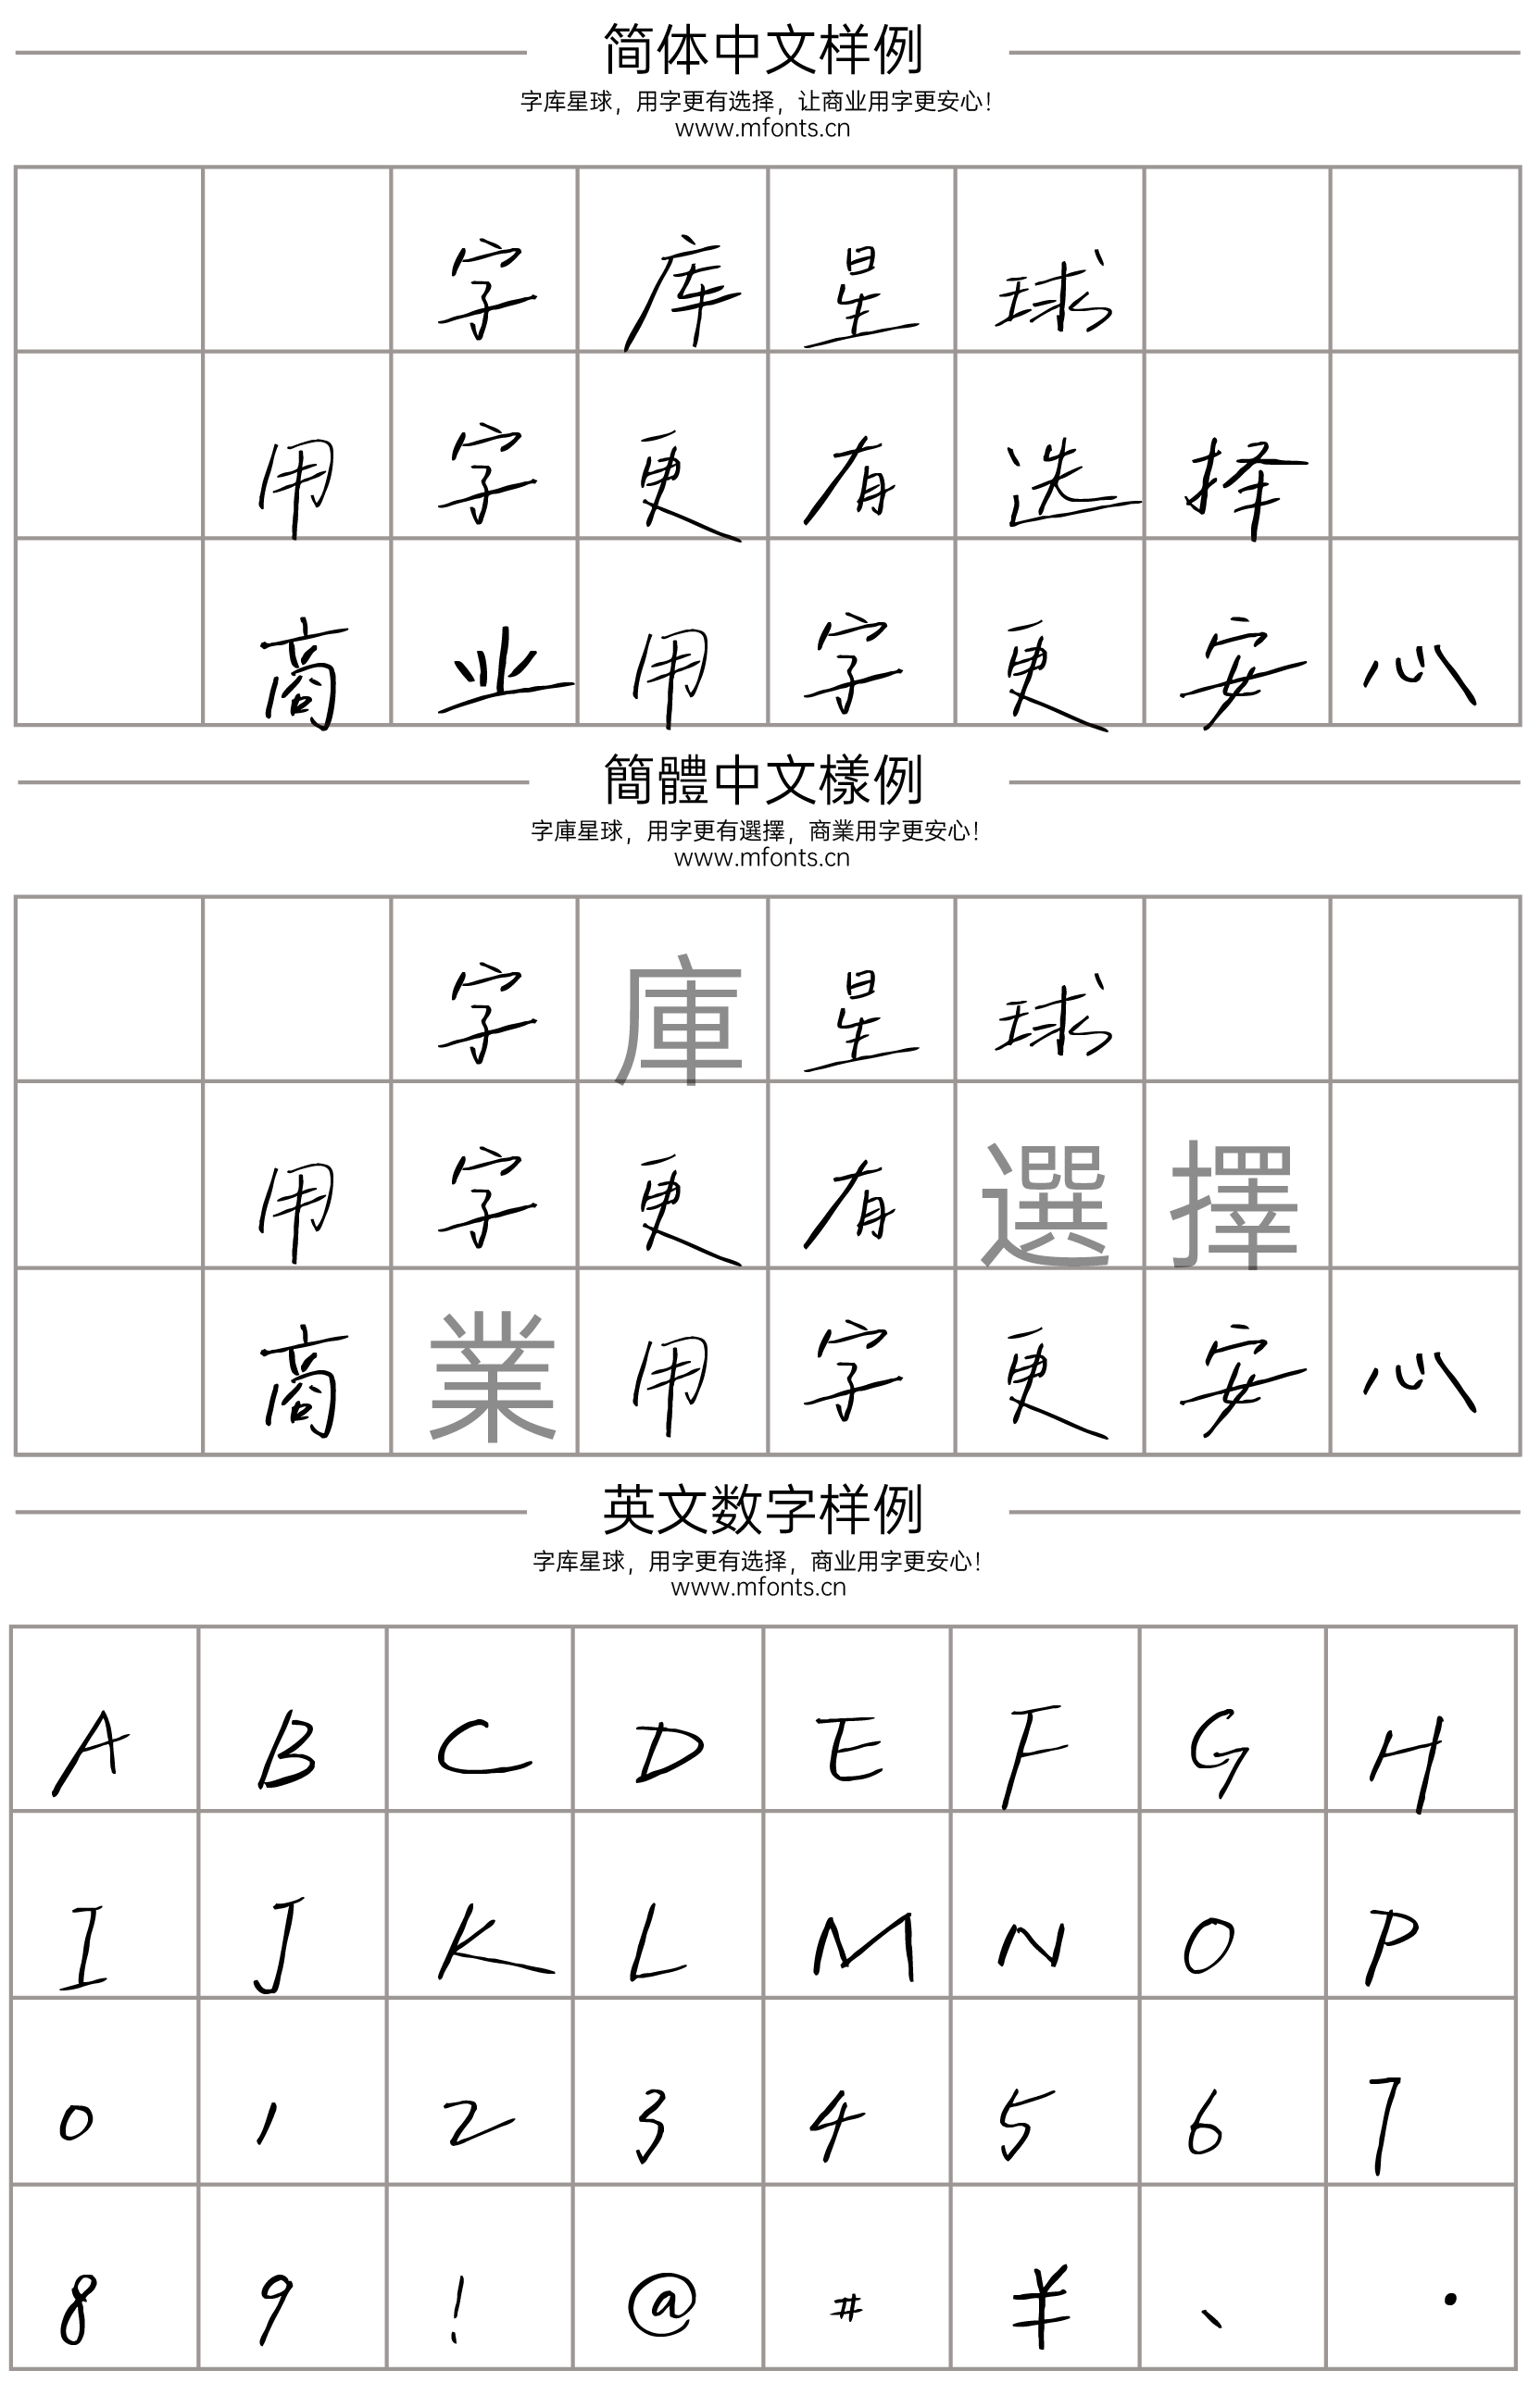 简体中文样例
字库星球，用字更有选择，让商业用字更安心！
www.mfonts.cn
字库星球
用字更有选择
商业用字更安心
簡體中文樣例
字庫星球，用字更有選擇，商業用字更安心！
www.mfonts.cn
字庫星球
用字更有選擇
商業用字更安心
英文数字样例
字库星球，用字更有选择，商业用字更安心！
www.mfonts.cn
A B C D E F G H
I J K L M N O P
0 1 2 3 4 5 6 7
8 9 ! @ # ¥ 、 ·